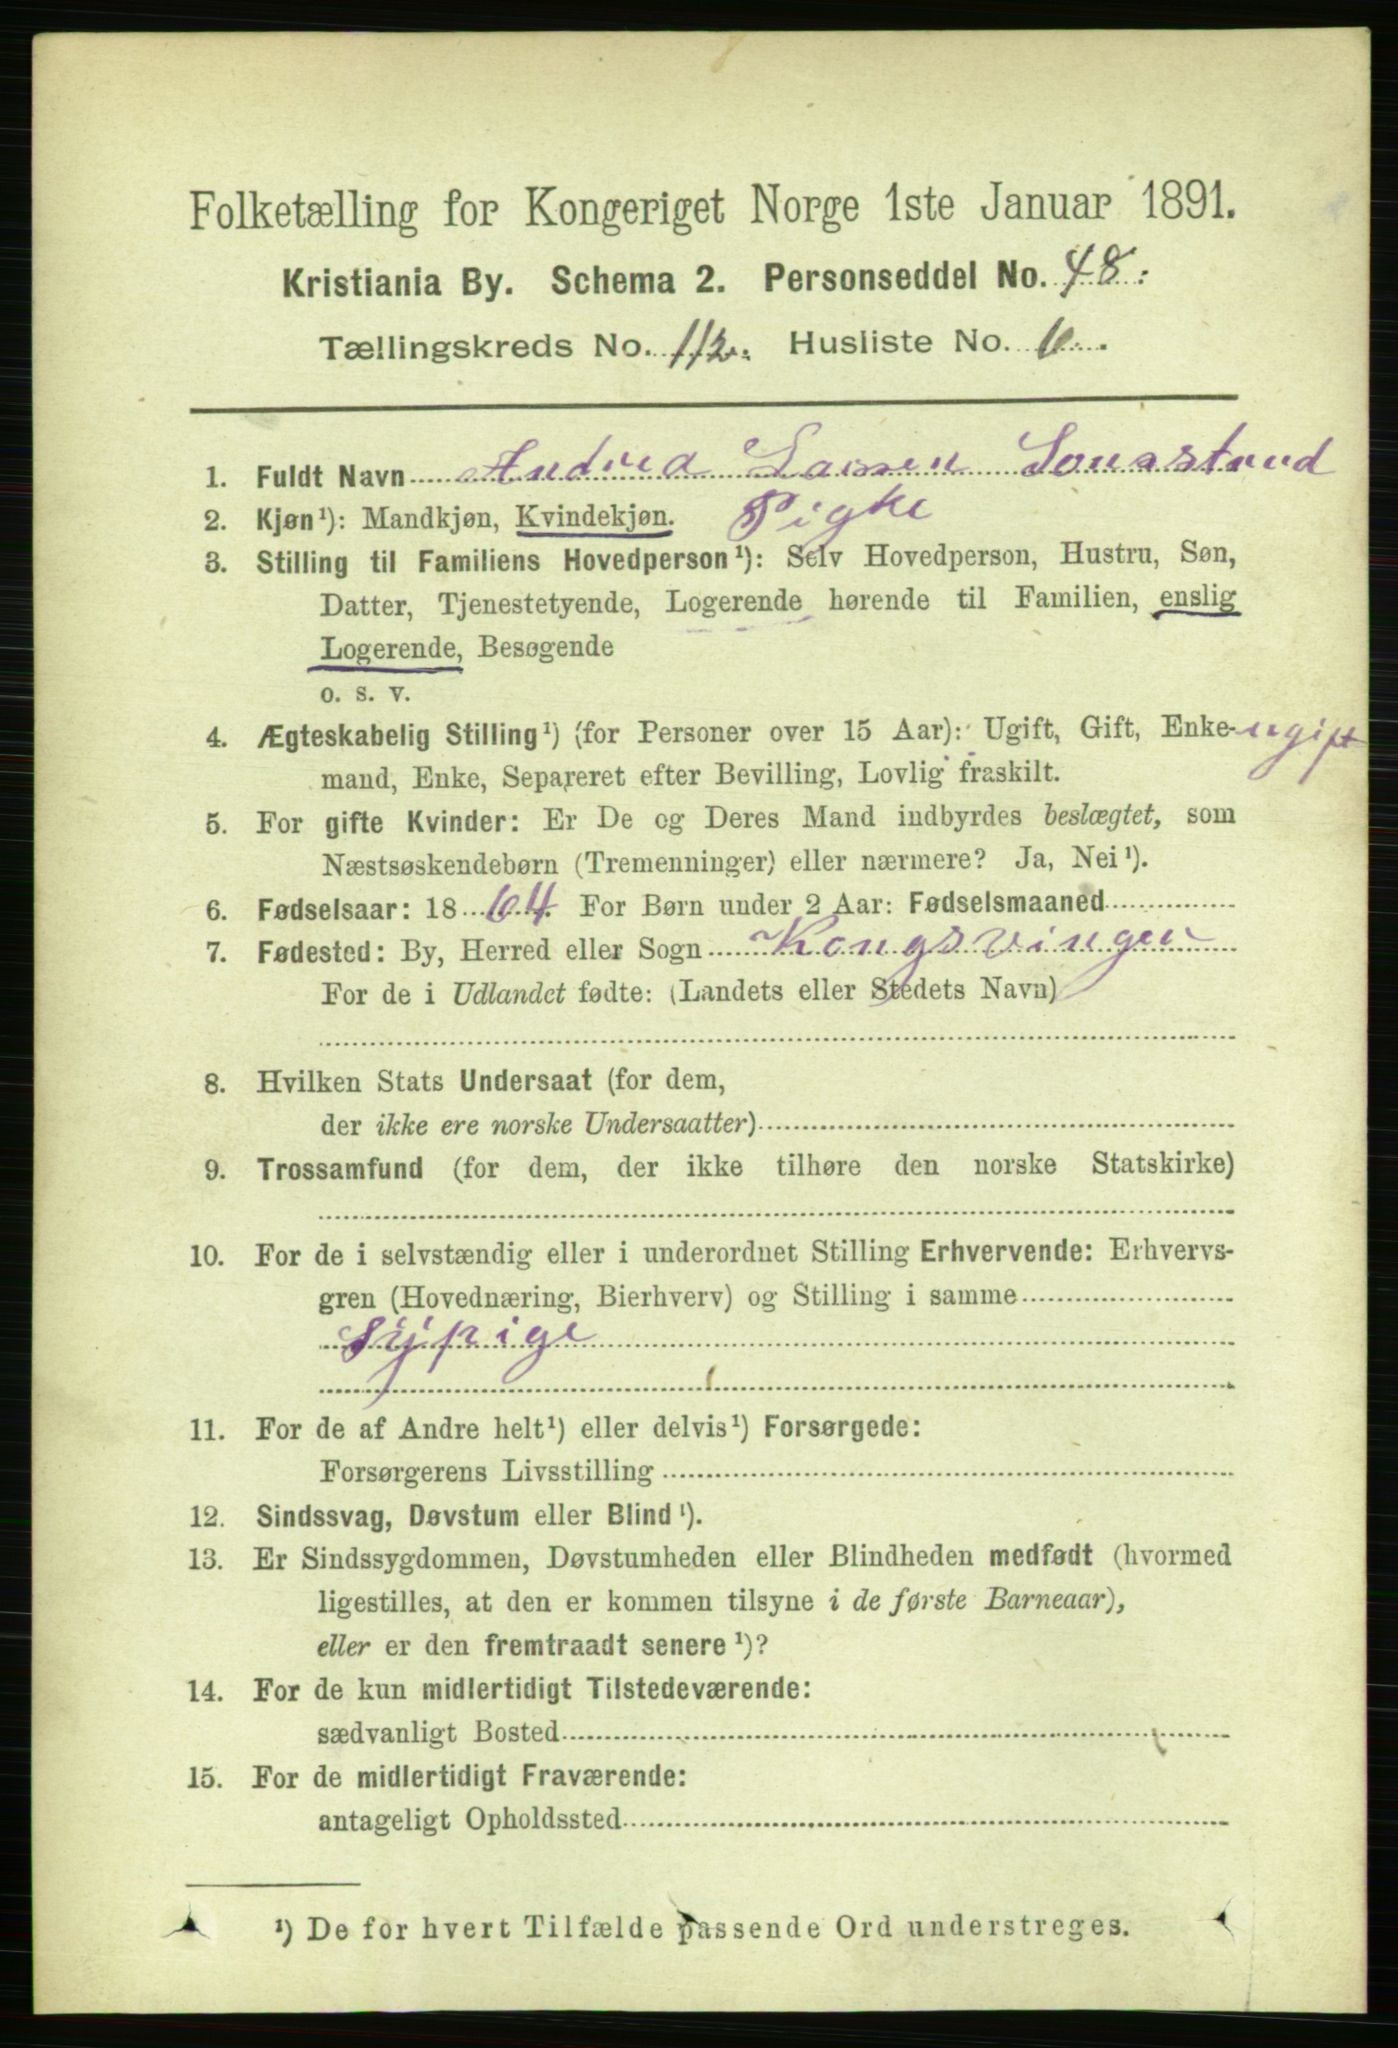 Folketælling for Kongeriget Norge 1ste Januar 1891.
Kristiania By. Schema 2. Personseddel No. 48.
Tællingskreds No. 112. Husliste No. 6.
1. Fuldt Navn Andrea Larsen
2. Kjøn¹): Mandkjøn, Kvindekjøn. Pigke
3. Stilling til Familiens Hovedperson¹): Selv Hovedperson, Hustru, Søn,
Datter, Tjenestetyende, Logerende hørende til Familien, enslig
Logerende, Besøgende
o. s. v.
4. Ægteskabelig Stilling¹) (for Personer over 15 Aar): Ugift, Gift, Enke- ugift
mand, Enke, Separeret efter Bevilling, Lovlig fraskilt.
5. For gifte Kvinder: Er De og Deres Mand indbyrdes beslægtet, som
Næstsøskendebørn (Tremenninger) eller nærmere? Ja, Nei¹).
6. Fødselsaar: 1864. For Børn under 2 Aar: Fødselsmaaned
7. Fødested: By, Herred eller Sogn Kongsvinger
For de i Udlandet fødte: (Landets eller Stedets Navn)
8. Hvilken Stats Undersaat (for dem,
der ikke ere norske Undersaatter)
9. Trossamfund (for dem, der ikke tilhøre den norske Statskirke)
10. For de i selvstændig eller i underordnet Stilling Erhvervende: Erhvervs-
gren (Hovednæring, Bierhverv) og Stilling i samme
Sypige
11. For de af Andre helt¹) eller delvis¹) Forsørgede:
Forsørgerens Livsstilling
12. Sindssvag, Døvstum eller Blind¹).
13. Er Sindssygdommen, Døvstumheden eller Blindheden medfødt (hvormed
ligestilles, at den er kommen tilsyne i de første Barneaar),
eller er den fremtraadt senere¹)?
14. For de kun midlertidigt Tilstedeværende:
sædvanligt Bosted
15. For de midlertidigt Fraværende:
antageligt Opholdssted
¹) De for hvert Tilfælde passende Ord understreges.